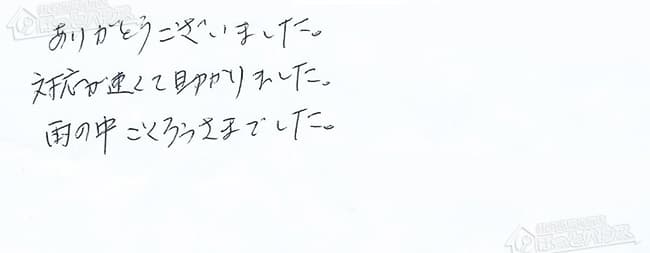 ありがとうございました。
対応が速くて助かりました。
雨の中ごくろうさまでした。